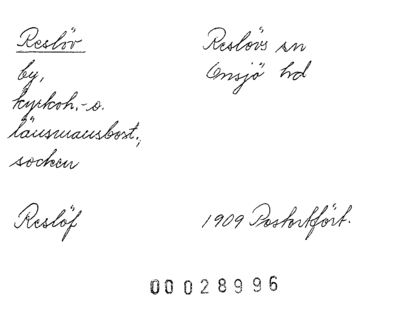 Reslöv
Reslövs sn
by,
Onsjö hd
kyrkoh.- o.
länsmansbost.,
socken
Reslöf
1909 Postortfört.
00028996